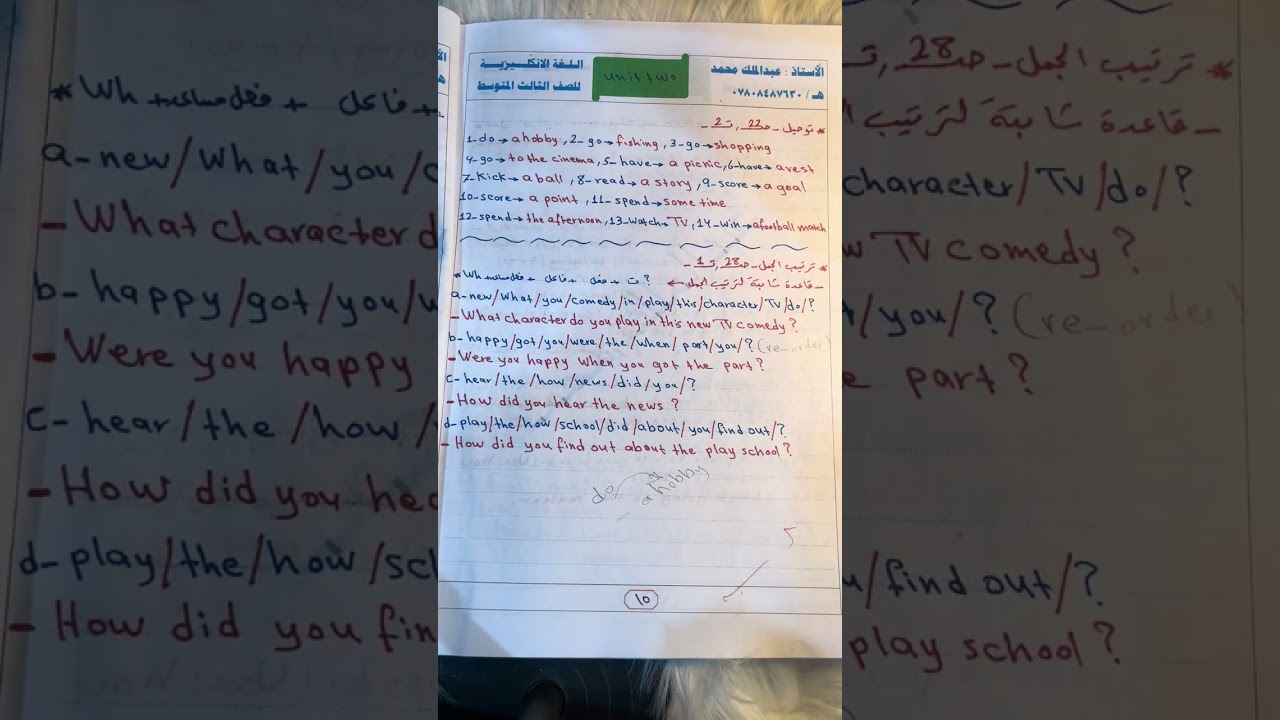 الأستاذ : عبدالملك محمد
unit two
اللغة الانكليزية
هـ / ٠٧٨٠٨٤٨٧٦٣٠
للصف الثالث المتوسط
* توصيل - صـ22 , تـ2 -
1-do → a hobby , 2- go → fishing , 3-go → shopping
4-go → to the cinema, 5- have → a picnic, 6-have → a rest
7-Kick → a ball , 8- read → a story , 9-score → a goal
10-score → a point , 11- spend → some time
12-spend → the afternoon, 13-watch → TV , 14-win → a football match
* ترتيب الجمل - صـ28 , تـ1 -
- قاعدة ثابتة لترتيب الجمل ←
* Wh + فعل مساعد + فاعل + فعل + ت ?
a-new/what/you/comedy/in/play/this/character/TV/do/?
- What character do you play in this new TV comedy ?
b- happy/got/you/were/the/when/ part/you/? (re-order)
- Were you happy when you got the part ?
c-hear/the/how/news/did/you/?
- How did you hear the news ?
d-play/the/how/school/did/about/you/find out/?
- How did you find out about the play school ?
do
a hobby
١٠